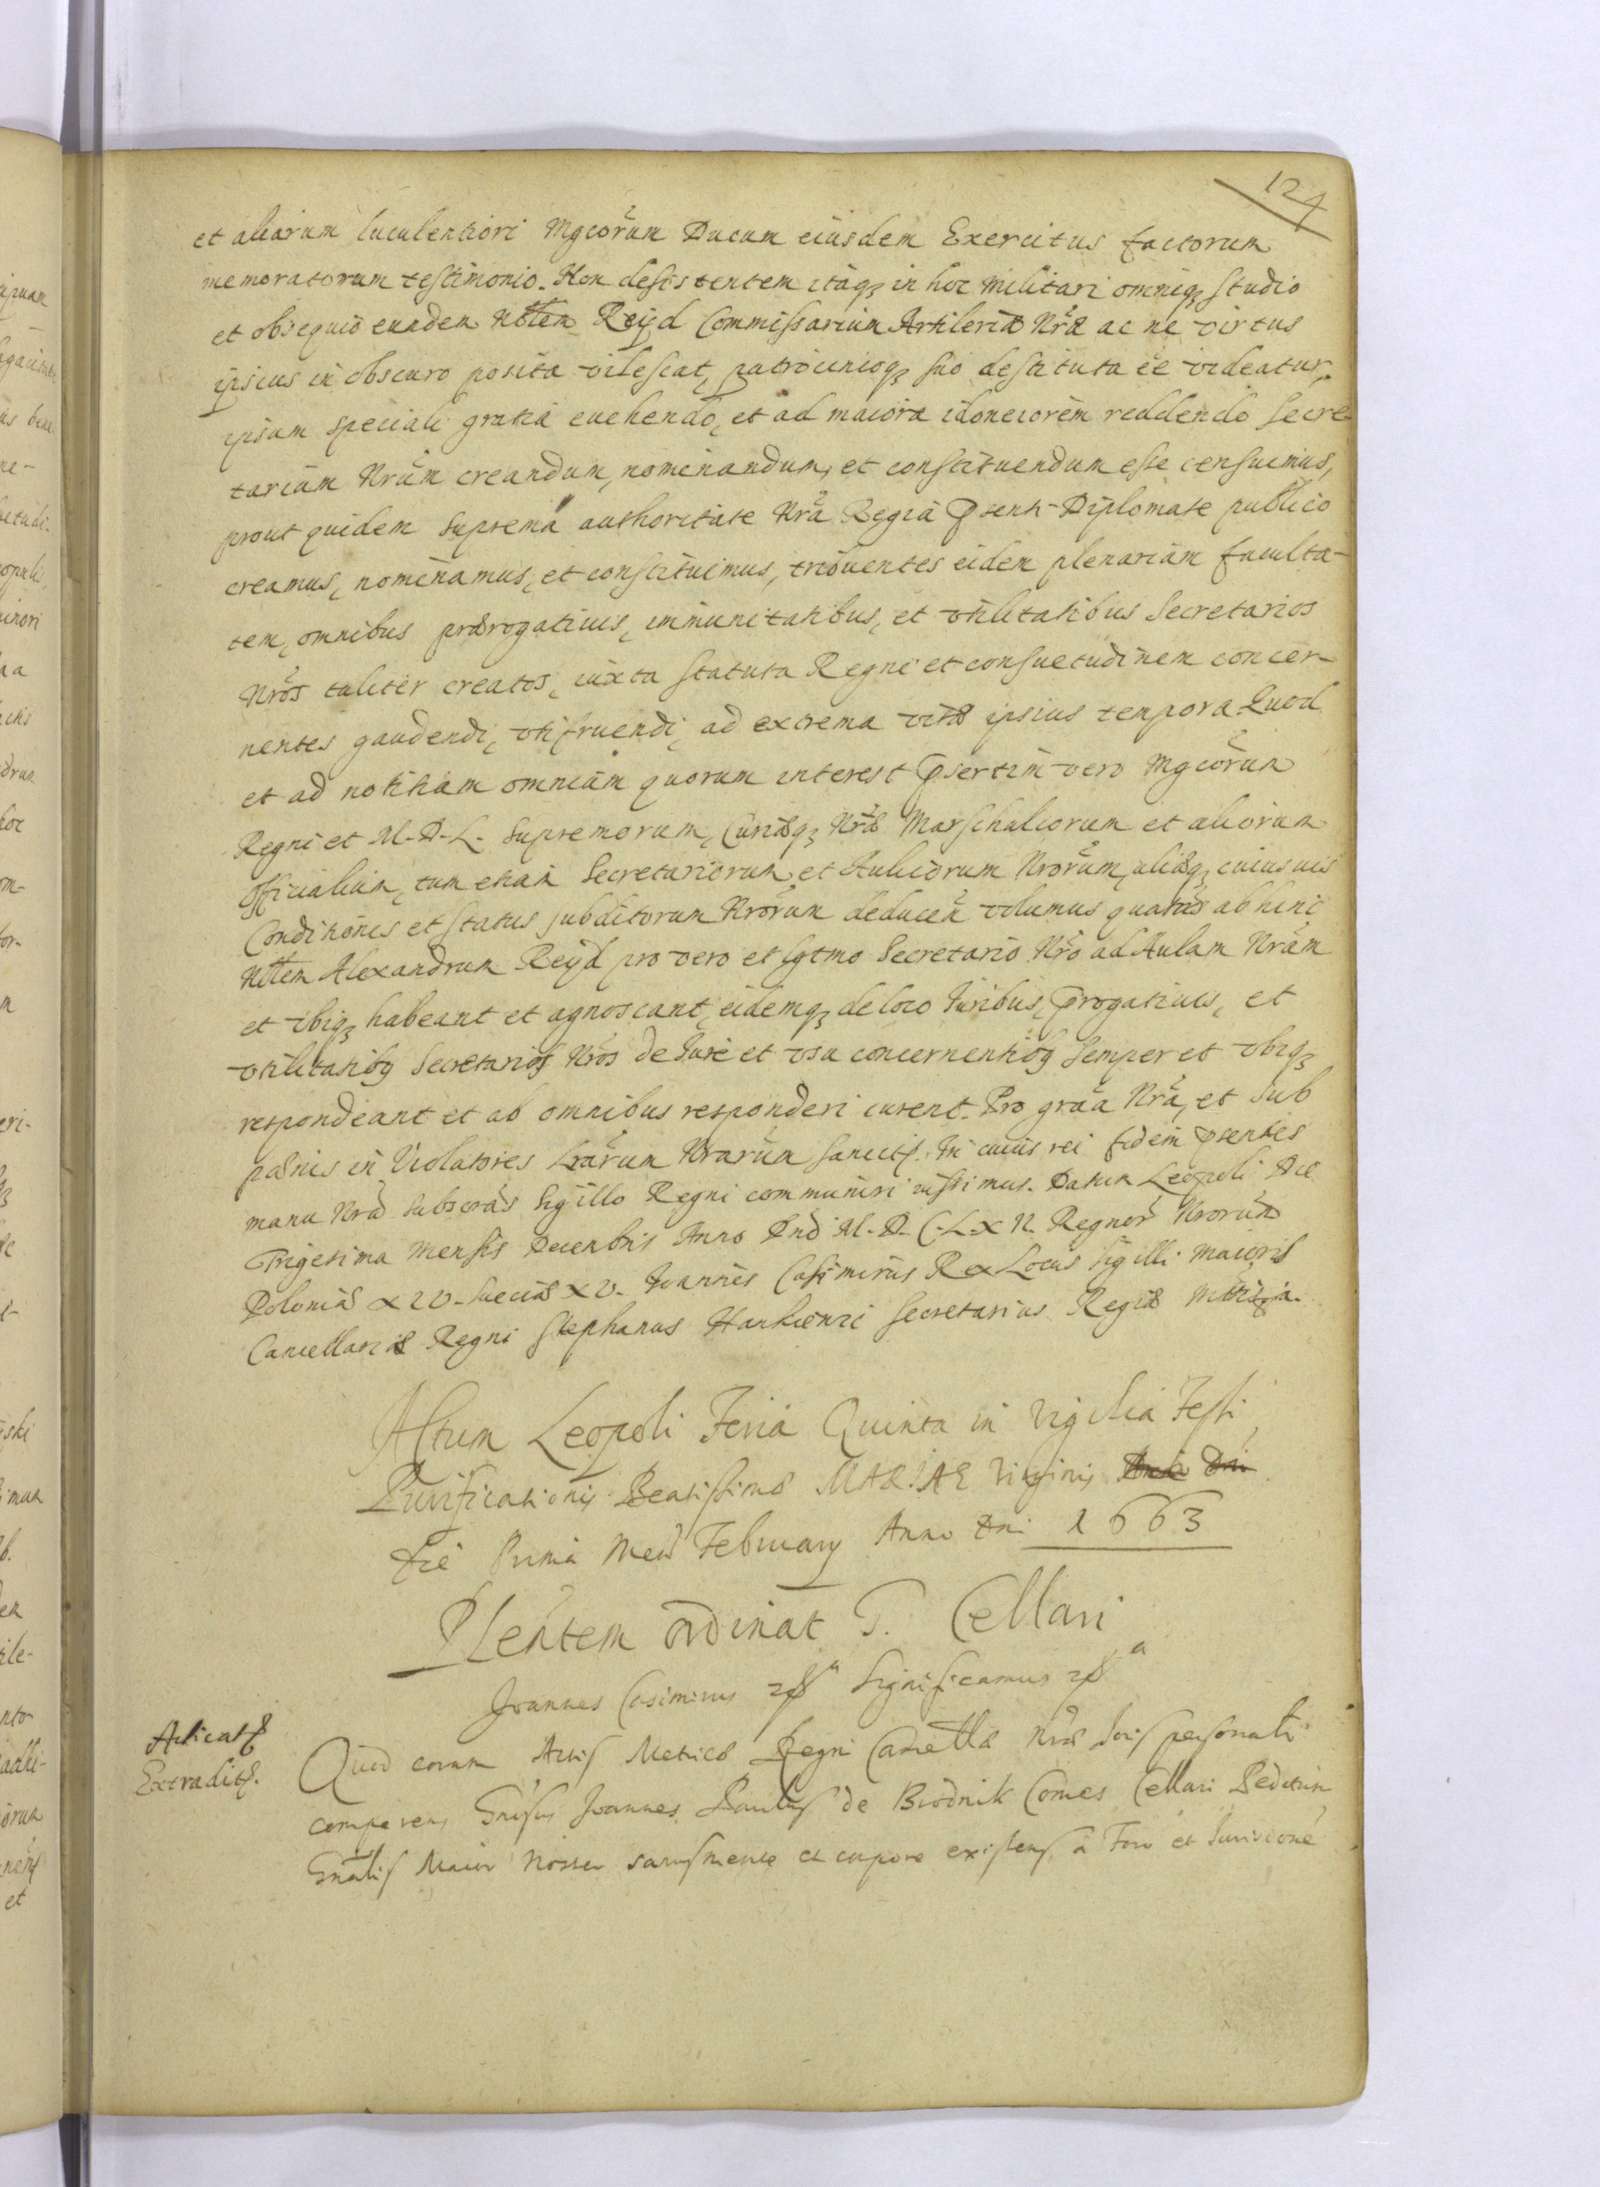 124
et aliorum luculentiori Mgcorum Ducum eiusdem Exercitus factorum
memoratorum testimonio. Non desistentem itaq; in hoc militari omniq; studio
et obsequio eundem Nblem Reyd Commissarium Artileriæ Nræ ac ne virtus
ipsius in obscuro posita vilescat, patrocinioq; suo destituta ēē videatur,
ipsum speciali gratia euehendo, et ad maiora idoneiorem reddendo Secre-
tarium Nrum creandum, nominandum, et constituendum esse censuimus,
prout quidem suprema authoritate Nra Regia Psenti Diplomate publico
creamus, nominamus, et constituimus, tribuentes eidem plenariam faculta-
tem, omnibus prærogatiuis, immunitatibus, et vtilitatibus Secretarios
Nros taliter creatos, iuxta statuta Regni et consuetudinem concer-
nentes gaudendi, vtifruendi, ad extrema vitæ ipsius tempora. Quod
et ad notitiam omnium quorum interest Psertim vero Mgcorum
Regni et M. D. L. Supremorum, Curiæq; Nræ Marschalcorum et aliorum
Officialium, tum etiam Secretariorum et Aulicorum Nrorum, aliaq; cuiusuis
Conditionis et status subditorum Nrorum deducen volumus quatus ab hinc
Nblem Alexandrum Reyd pro vero et lgtmo Secretario Nro ad Aulam Nram
et vbiq; habeant et agnoscant, eidemq; de loco Iuribus, Progatiuis, et
vtilitatibq Secretarios Nros de Iure et vsu concernentibq semper et vbiq;
respondeant et ab omnibus responderi curent. Pro graa Nra, et sub
pænis in Violatores Lrarum Nrarum sancitis. In cuius rei fidem Psentes
manu Nra subscras Sigillo Regni communiri iussimus. Datum Leopoli Die
Trigesima Mensis Decembris Anno Dni M. D. C. L. X II. Regnor Nrorum
Poloniæ XIV. Sueciæ XV. Joannes Casimirus Rex Locus sigilli maioris
Cancellariæ Regni Stephanus Hankiewic Secretarius Regiæ Mttis
Actum Leopoli Feria Quinta in Vigilia Festi
Purificationis Beatissimæ MARIAE Virginis
die Prima Mens February Anno Dni 1663
Plentem ordinat G. Cellari
Joannes Casimirus Significamus
Acticats
Extradits.
Quod coram Actis Metrices Regni Cancellæ Nræ Sois personalr
comparens Gnrsus Joannes Paulus de Brodnik Comes Cellari Peditum
Gnalis Maior Noster sanus mente et corpore existens, a Foro et Iurisdcone